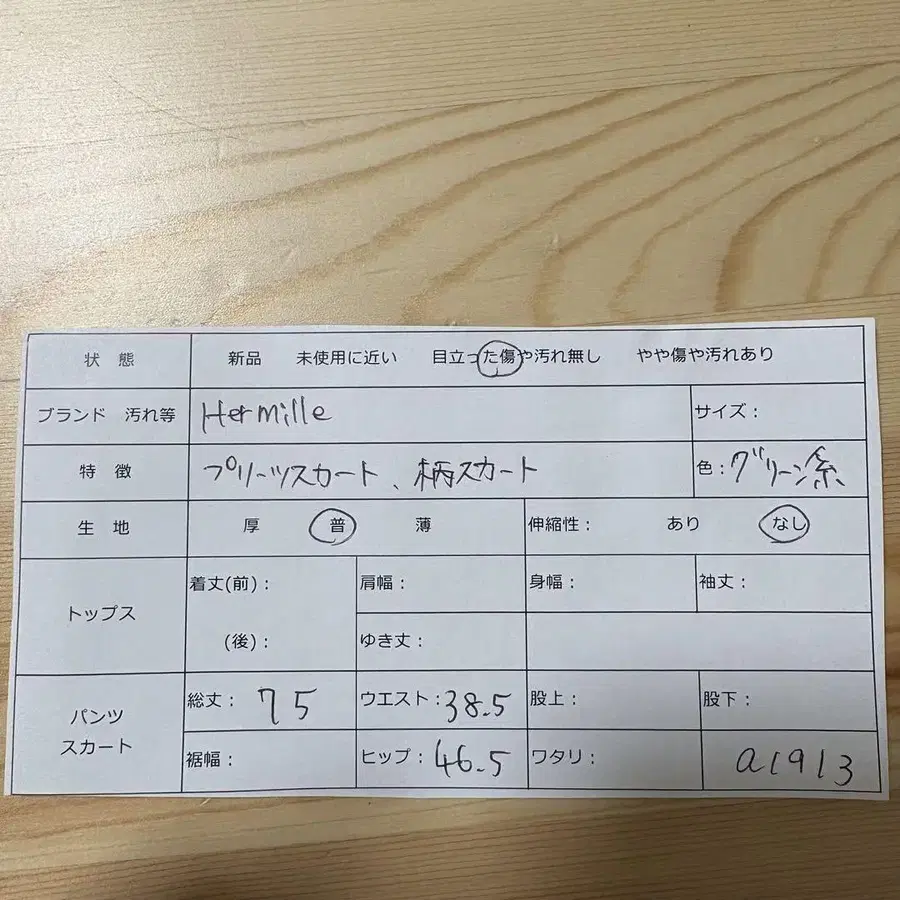 状 態 新品 未使用に近い 目立った傷や汚れ無し やや傷や汚れあり
ブランド 汚れ等 Hermille サイズ：
特 徴 プリーツスカート、柄スカート 色：グリーン系
生 地 厚 普 薄 伸縮性： あり なし
トップス 着丈(前)： 肩幅： 身幅： 袖丈：
(後)： ゆき丈：
パンツ スカート 総丈：75 ウエスト：38.5 股上： 股下：
裾幅： ヒップ：46.5 ワタリ： a1913